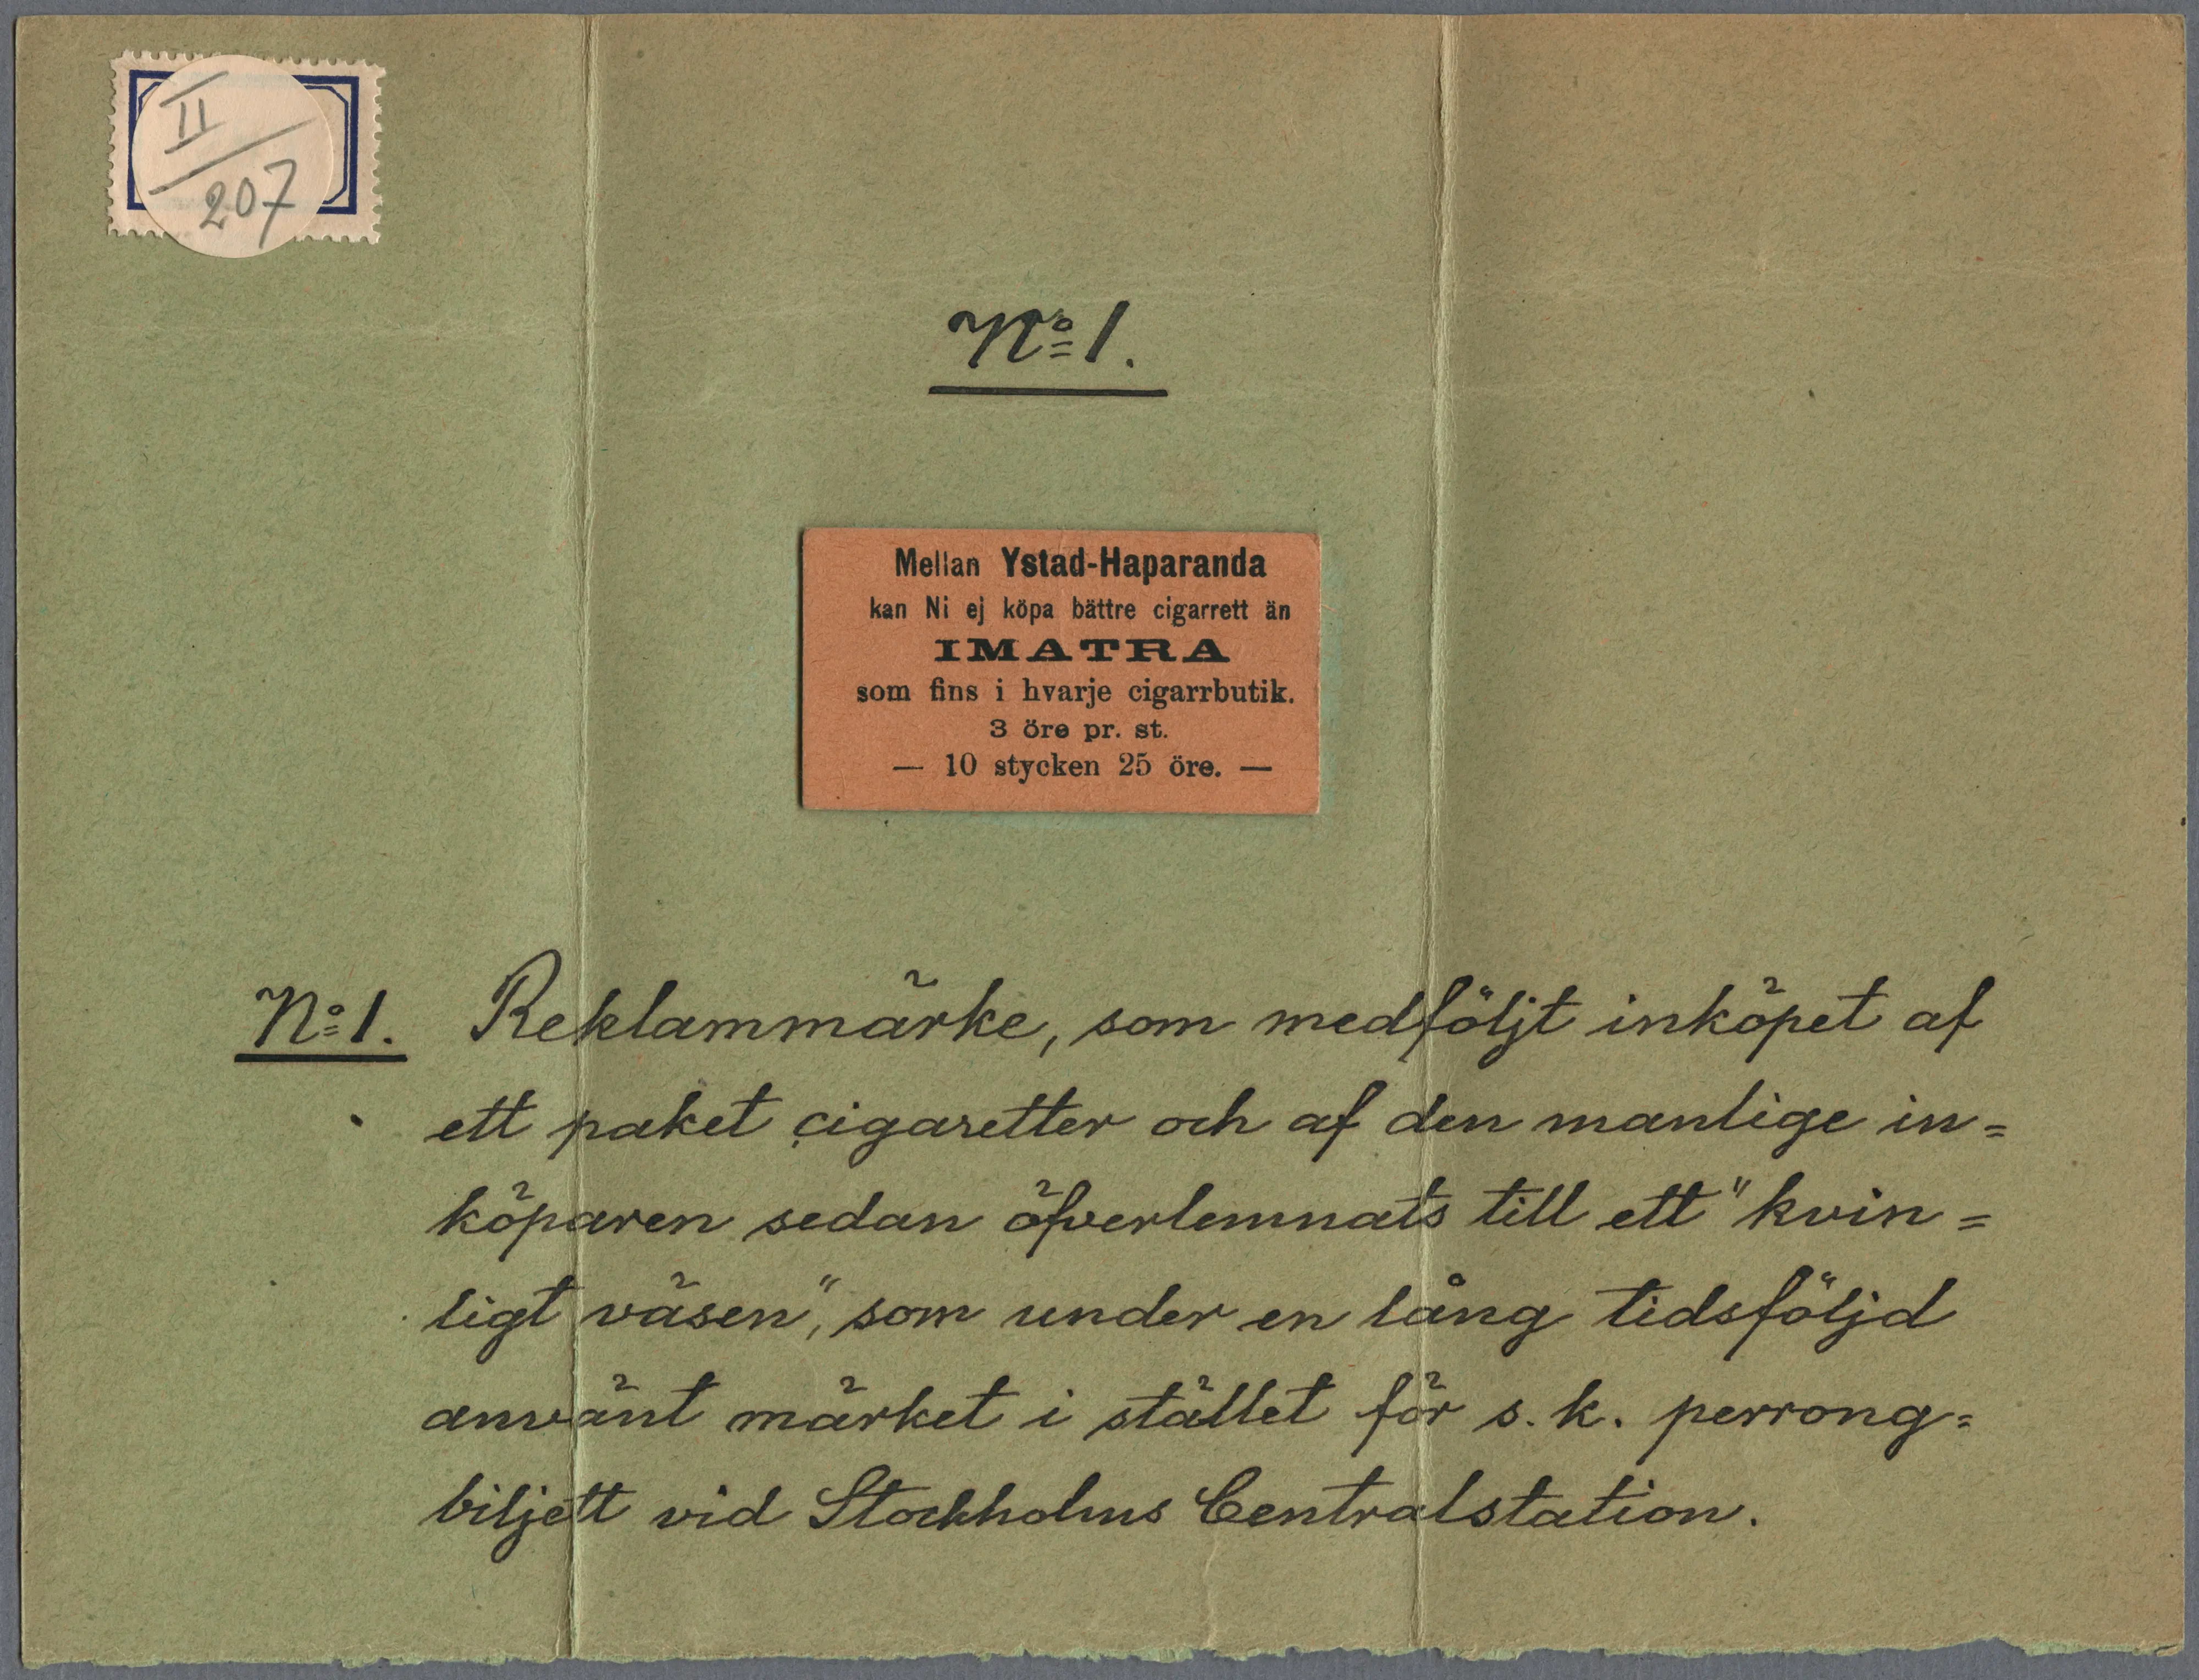 II
207
No 1.
Mellan Ystad-Haparanda
kan Ni ej köpa bättre cigarrett än
IMATRA
som fins i hvarje cigarrbutik.
3 öre pr. st.
— 10 stycken 25 öre. —
No 1. Reklammärke, som medföljt inköpet af
ett paket cigaretter och af den manlige in=
köparen sedan öfverlemnats till ett "kvin=
ligt väsen", som under en lång tidsföljd
användt märket i stället för s. k. perrong=
biljett vid Stockholms Centralstation.